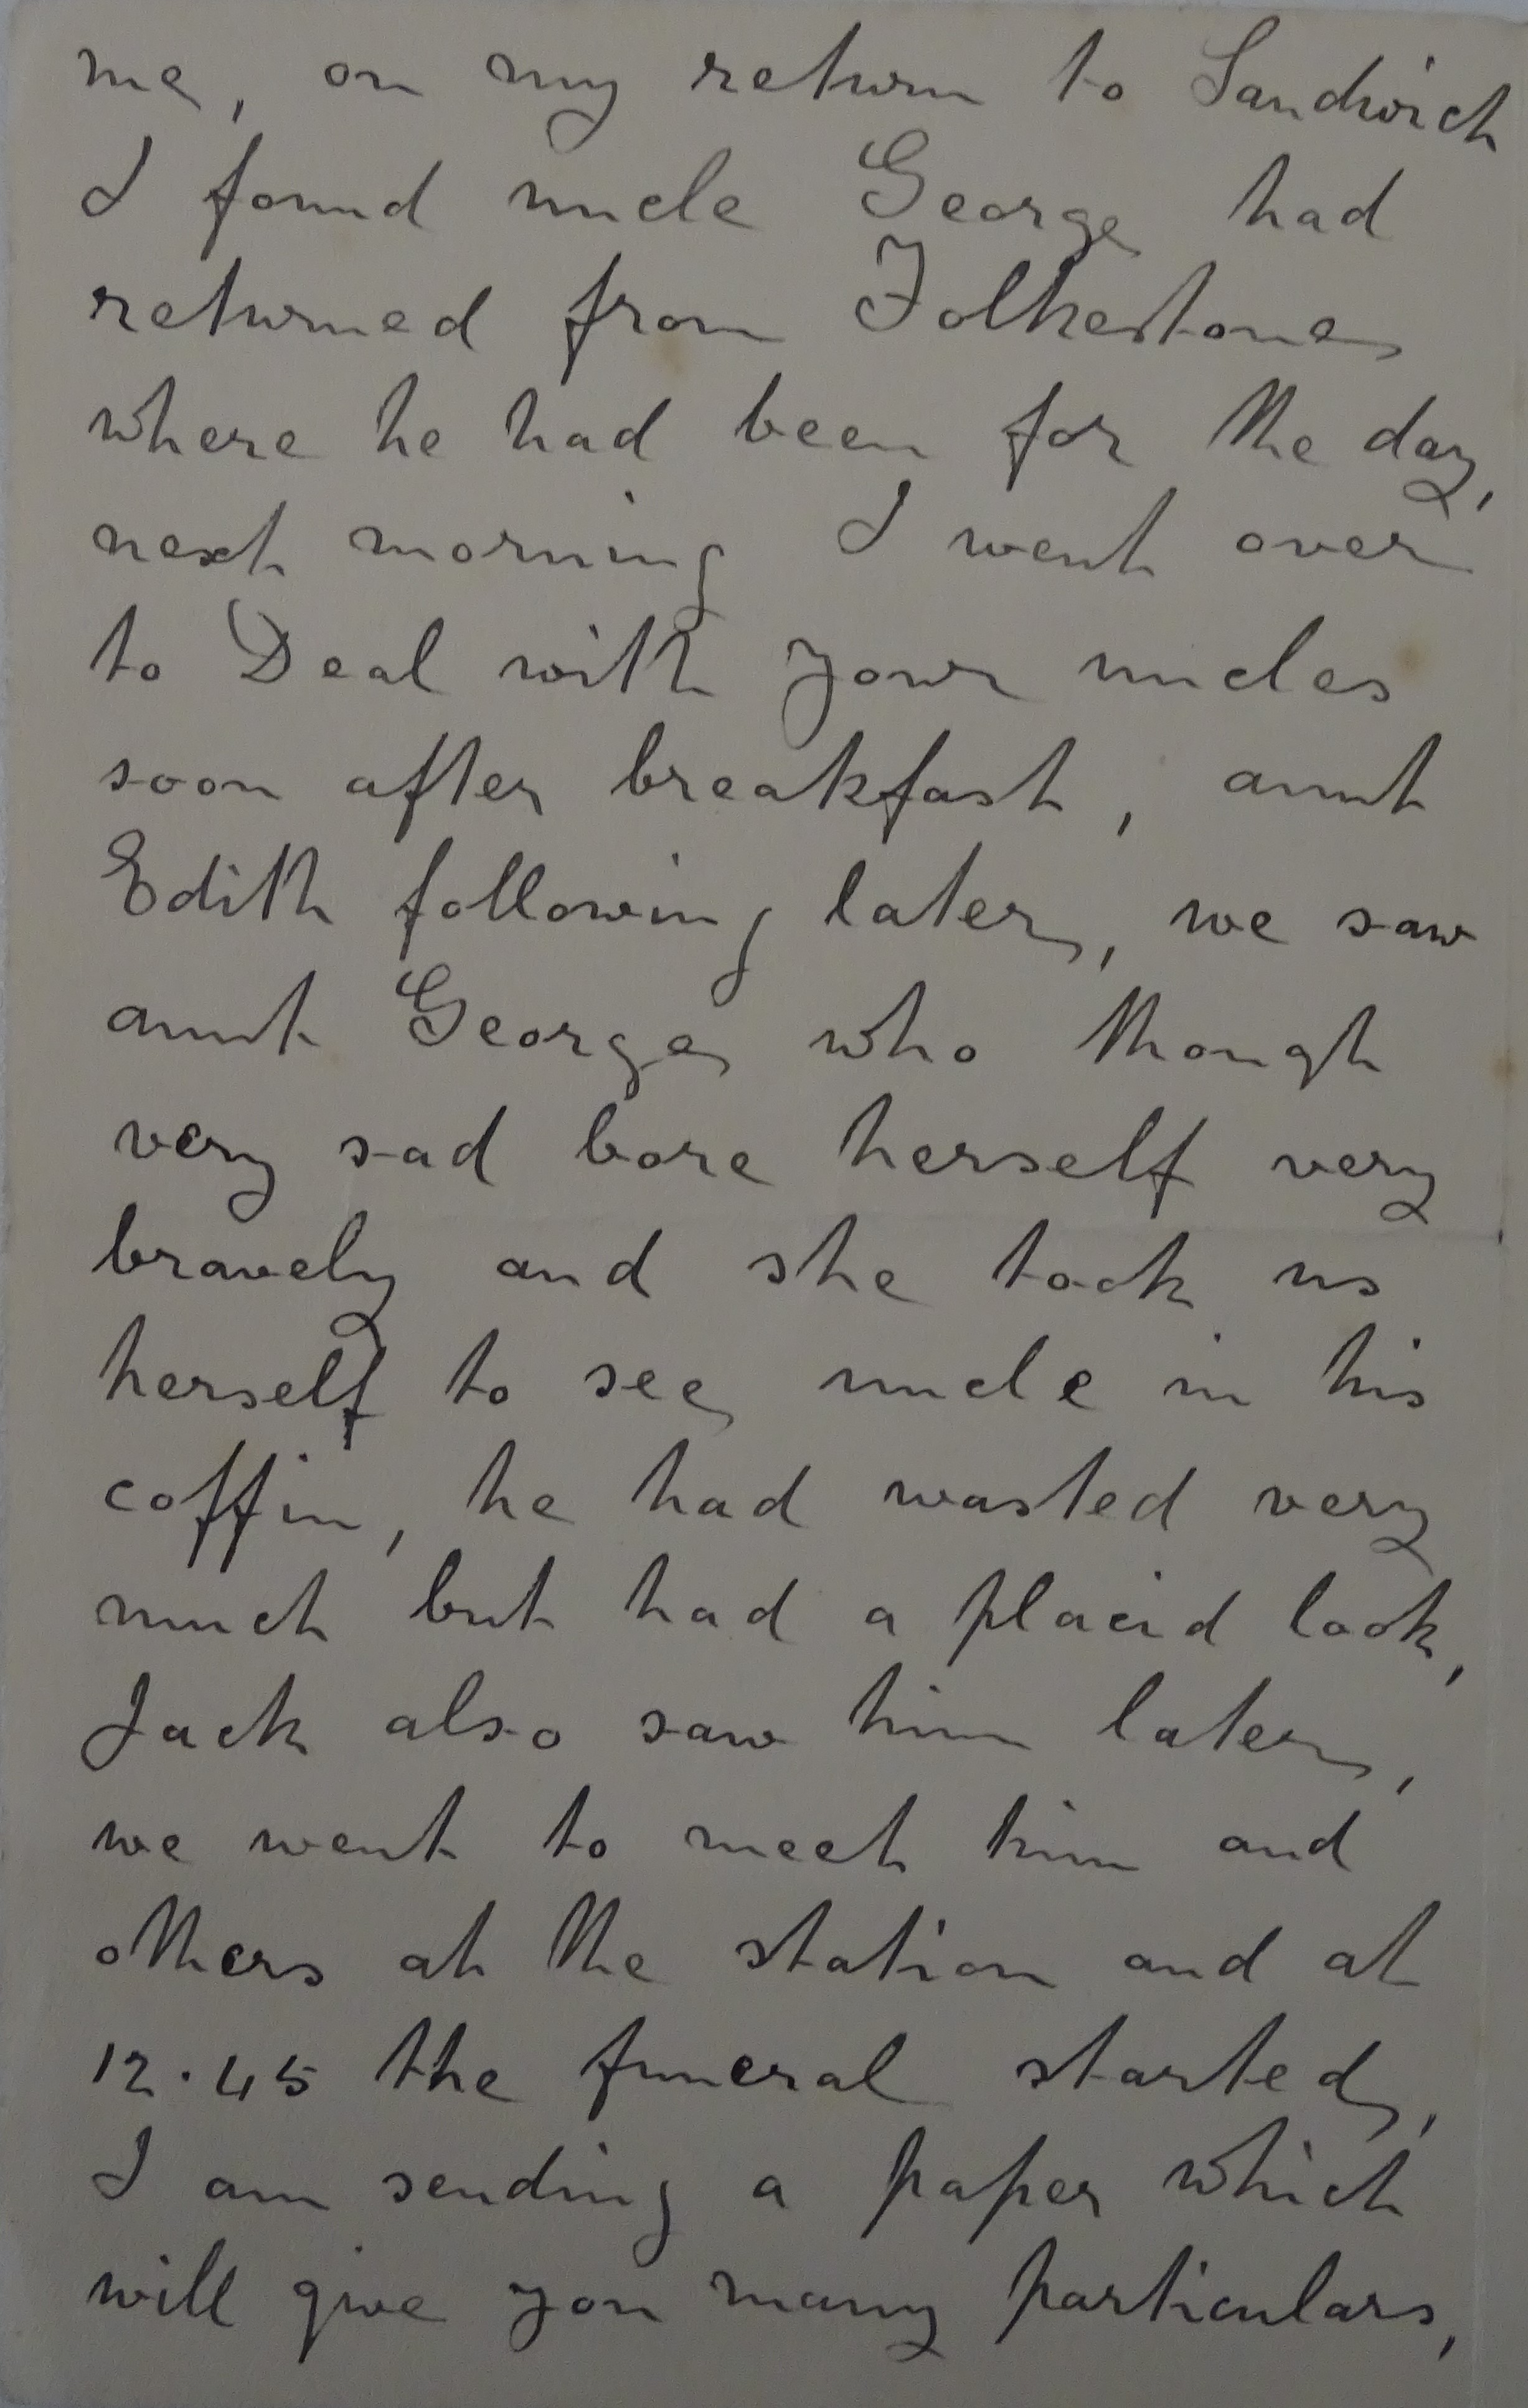 me, on my return to Sandwich
I found uncle George had
returned from Folkestone
where he had been for the day,
next morning I went over
to Deal with your uncles
soon after breakfast, aunt
Edith following later, we saw
aunt George who though
very sad bore herself very
bravely and she took us
herself to see uncle in his
coffin, he had wasted very
much but had a placid look,
Jack also saw him later,
we went to meet him and
others at the station and at
12.45 the funeral started,
I am sending a paper which
will give you many particulars,